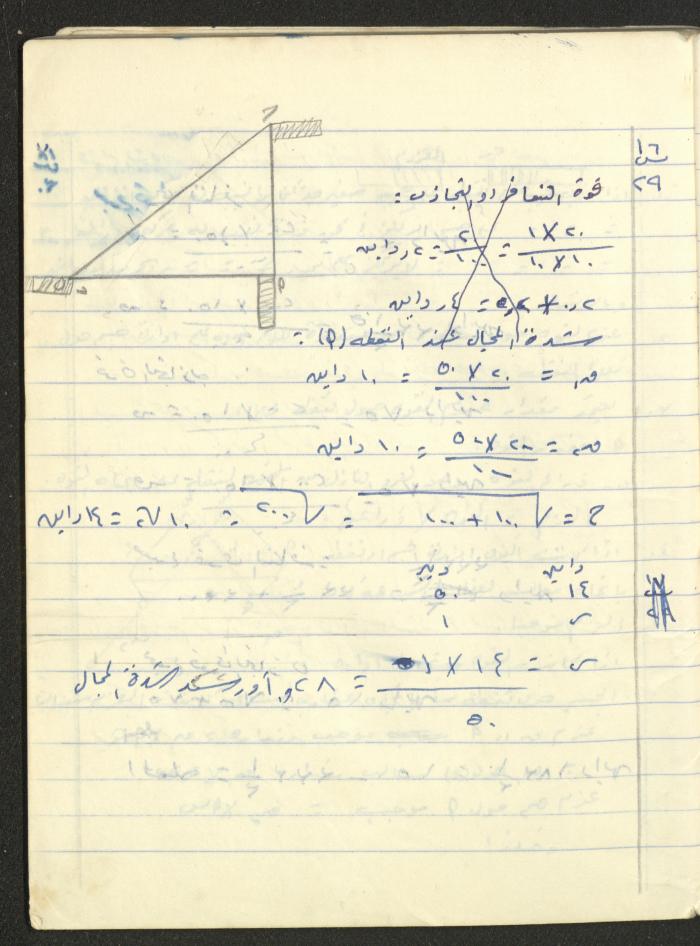 ١٦
س
٢٩
قوة التنافر او التجاذب :
١ × ٢٠ / ١٠ × ١٠ = ٢ / ١٠ = ٢ر داين
٢ر٠ × ٢ = ٤ر داين
شدة المجال عند النقطه (م) :
ص١ = ٢٠ × ٥٠ / ١٠٠ = ١٠ داين
ص٢ = ٢٠ × ٥٠ / ١٠٠ = ١٠ داين
ح = √١٠٠ + ١٠٠ = √٢٠٠ = ١٠√٢ = ١٤ داين
داين
١٤ ٥٠
س ١
س = ١٤ × ١ / ٥٠ = ٢٨و أورستد شدة المجال